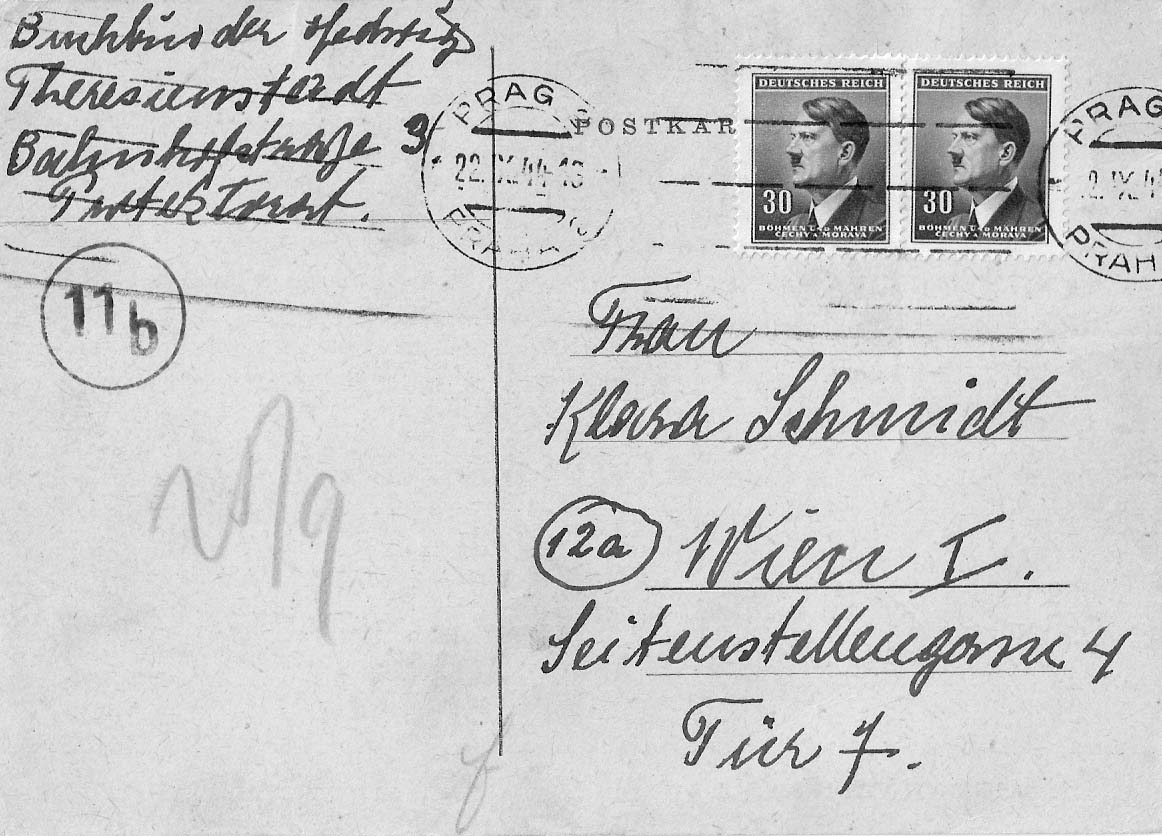 Buchbinder Hedwig
Theresienstadt
Bahnhofstraße 3
Protektorat.
11b
PRAG
22.IX.44-18
PRAHA
POSTKAR
DEUTSCHES REICH
30
BÖHMEN UND MÄHREN
ČECHY A MORAVA
DEUTSCHES REICH
30
BÖHMEN UND MÄHREN
ČECHY A MORAVA
PRAG
2.IX.4
PRAH
Frau
Klara Schmidt
12a Wien I.
Seitenstellengasse 4
Tür 7.